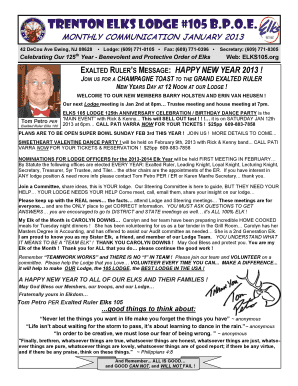 TRENTON ELKS LODGE #105 B.P.O.E.
MONTHLY COMMUNICATION JANUARY 2013
42 DeCou Ave Ewing, NJ 08628 • Lodge: (609) 771-0105 • Fax: (609) 771-0396 • Secretary: (609) 771-8305
Celebrating Our 125th Year - Benevolent and Protective Order of Elks Web: ELKS105.org
EXALTED RULER'S MESSAGE: HAPPY NEW YEAR 2013 !
JOIN US FOR A CHAMPAGNE TOAST TO THE GRAND EXALTED RULER
NEW YEARS DAY AT 12 NOON AT OUR LODGE !
WELCOME TO OUR NEW MEMBERS BARRY HOLSTEN AND ERIN VAN HEUSEN !
Our next Lodge meeting in Jan 2nd at 8pm. Trustee meeting and house meeting at 7pm.
ELKS 105 LODGE 125th ANNIVERSARY CELEBRATION / BIRTHDAY DANCE PARTY is the
"MAIN EVENT" with Rick & Kenny at This will SELL OUT fast !!! . . it is on SATURDAY JAN 12th
2013 at 6pm. CALL PATI VARRA NOW FOR YOUR TICKETS ! $25pp 609-883-7858
Tom Petro PER
Exalted Ruler Elks 105
PLANS ARE TO BE OPEN SUPER BOWL SUNDAY FEB 3rd THIS YEAR ! JOIN US ! MORE DETAILS TO COME .
SWEETHEART VALENTINE DANCE PARTY ! will be held on February 9th, 2013 with Rick & Kenny band... CALL PATI
VARRA NOW FOR YOUR TICKETS TO THIS GREAT NIGHT ! $25pp 609-883-7858
NOMINATIONS FOR LODGE OFFICERS for the 2013-2014 Elk Year will be HELD FIRST MEETING in FEBRUARY ...
by Statute the following offices are elected EVERY YEAR: Exalted Ruler, Leading Knight, Loyal Knight, Lecturing Knight,
Secretary, Treasurer, Trustees, and Tiler... the other chairs are the appointments of the ER. If you have interest in
any lodge position and / need more info please contact Tom Petro PER / ER or Karen Martha Secretary .. thank you.
Join a Committee, share ideas, this is YOUR lodge. Our Steering Committee is here to guide, BUT THEY NEED YOUR
HELP .. YOUR LODGE NEEDS YOUR HELP! Come meet, call, email them, share your insight on our lodge.
Please keep up with the REAL news... the facts... attend Lodge and Steering meetings... These meetings are for
everyone... and are the ONLY place to get CORRECT information. YOU MUST ACTUALLY GO OUT TO GET GET
ANSWERS... you are encouraged to go to DISTRICT and STATE meetings as well... it's ALL 100% ELK !
My Elk of the Month is CAROLYN DOWNS... Carolyn and her team have been preparing incredible HOME COOKED
meals for Tuesday night dinners ! She has been volunteering for us as a bar tender in the Grill Room. Carolyn has her
Masters Degree in Accounting, and has offered to assist our Audit committee as needed.. She is a 2nd Generation Elk.
I am proud to know you as my Brother Elk, a friend, and member of our Lodge Team. YOU UNDERSTAND WHAT
IT MEANS TO BE A "TEAM ELK" ! THANK YOU CAROLYN DOWNS ! May God Bless and protect you. You are my
Elk of the Month ! Thank you for ALL that you do... please continue the good work !
Remember "TEAMWORK WORKS" and THERE IS NO "I" IN TEAM ! Please join our team and VOLUNTEER on a
committee. Please help the Lodge that you Love .. VOLUNTEER EVERY TIME YOU CAN... MAKE A DIFFERENCE...
it will help to make OUR Lodge, the 105 LODGE, the BEST LODGE IN THE USA !
A HAPPY NEW YEAR TO ALL OF OUR ELKS AND THEIR FAMILIES !
May GOD Bless our Members, our troops, and our Lodge...
Fraternally yours in Elkdom...
Tom Petro PER Exalted Ruler Elks 105
...good things to think about:
"Never let the things you want in life make you forget the things you have" ~ anonymous
"Life isn't about waiting for the storm to pass, it's about learning to dance in the rain." ~ anonymous
"In order to be creative, we must lose our fear of being wrong. " ~ anonymous
"Finally, brethren, whatsoever things are true, whatsoever things are honest, whatsoever things are just, whatso-
ever things are pure, whatsoever things are lovely, whatsoever things are of good report; if there be any virtue,
and if there be any praise, think on these things." ~ Philippians 4:8
And Remember... ALL IS GOOD...
and GOOD CAN NOT, and WILL NOT FAIL !